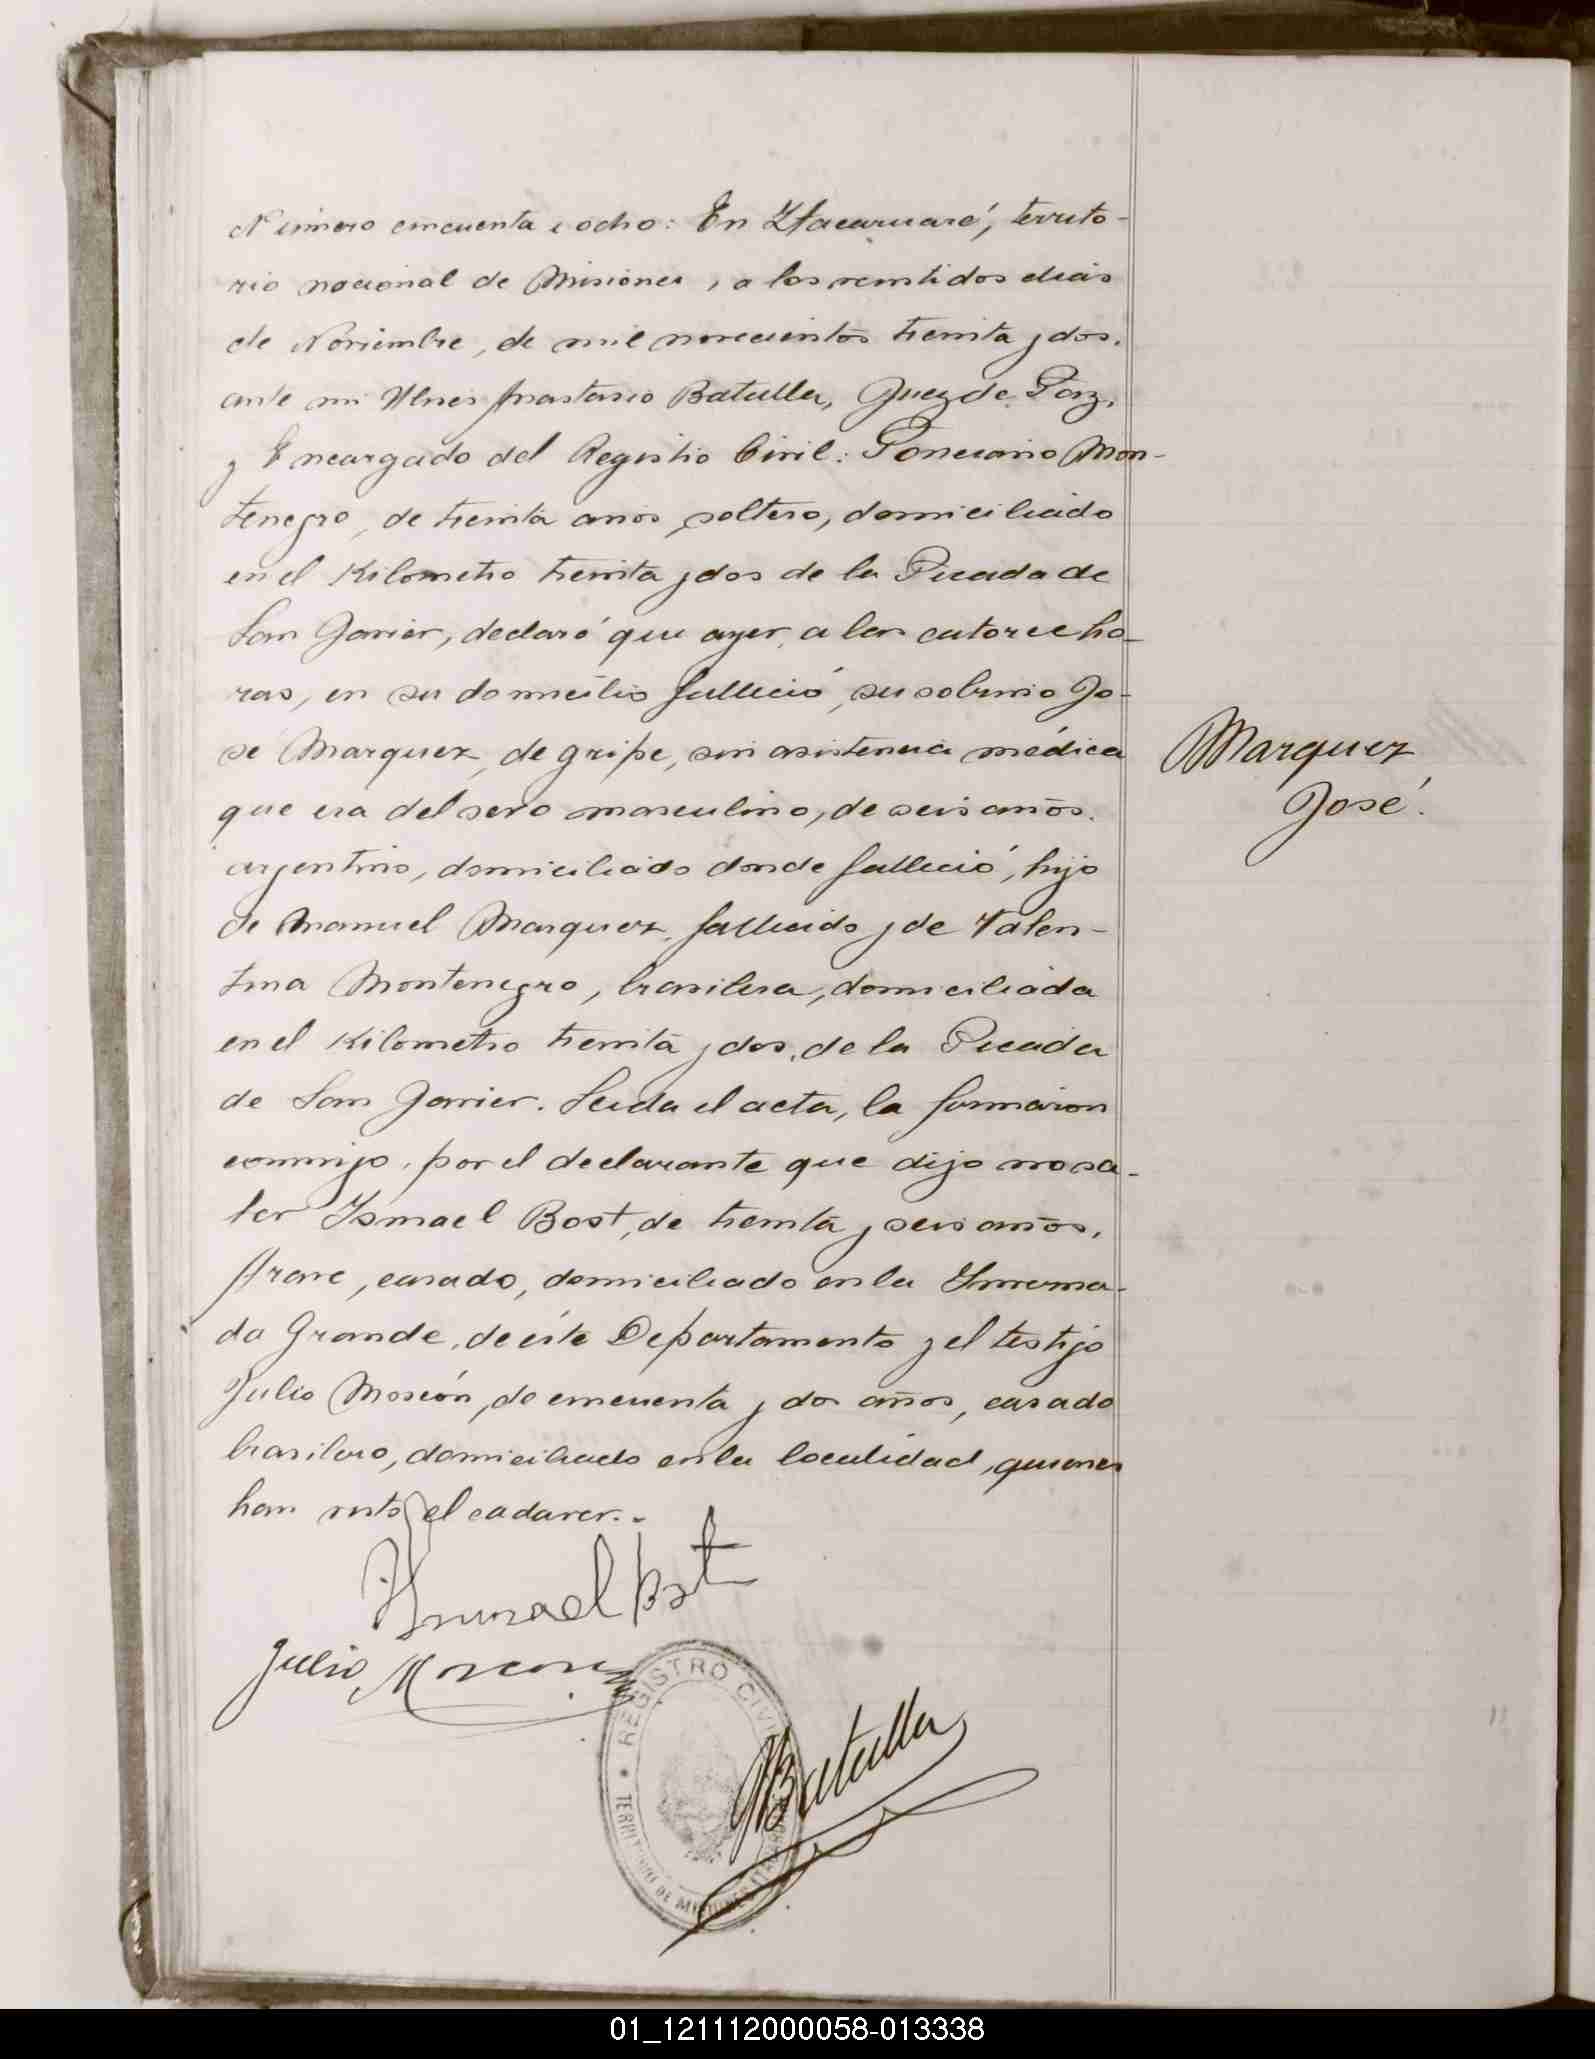 Número cincuenta i ocho: En Itacaruaré, territo-
rio nacional de Misiones, a los veintidos dias
de Noviembre, de mil novecientos treinta y dos,
ante mi Anastasio Batulla, Juez de Paz,
y Encargado del Registro Civil: Ponciano Mon-
tenegro, de treinta años, soltero, domiciliado
en el Kilometro treinta y dos de la Picada de
San Javier, declaró que ayer, a las catorce ho-
ras, en su domicilio falleció, su sobrino Jo-
sé Marquez, de gripe, sin asistencia médica
que era del sexo masculino, de seis años.
argentino, domiciliado donde falleció, hijo
de Manuel Marquez, fallecido y de Valen-
tina Montenegro, brasilera, domiciliada
en el Kilometro treinta y dos, de la Picada
de San Javier. Leida el acta, la firmaron
conmigo, por el declarante que dijo no sa-
ber Ismael Bost, de treinta y seis años,
casado, domiciliado en la Inverna-
da Grande, de éste Departamento y el testigo
Julio Moscón, de cincuenta y dos años, casado
brasilero, domiciliado en la localidad, quienes
han visto el cadaver.-
Marquez
José.
Ismael Bost
Julio Moscon
Batulla
REGISTRO CIVIL
TERRITORIO DE MISIONES
01_121112000058-013338